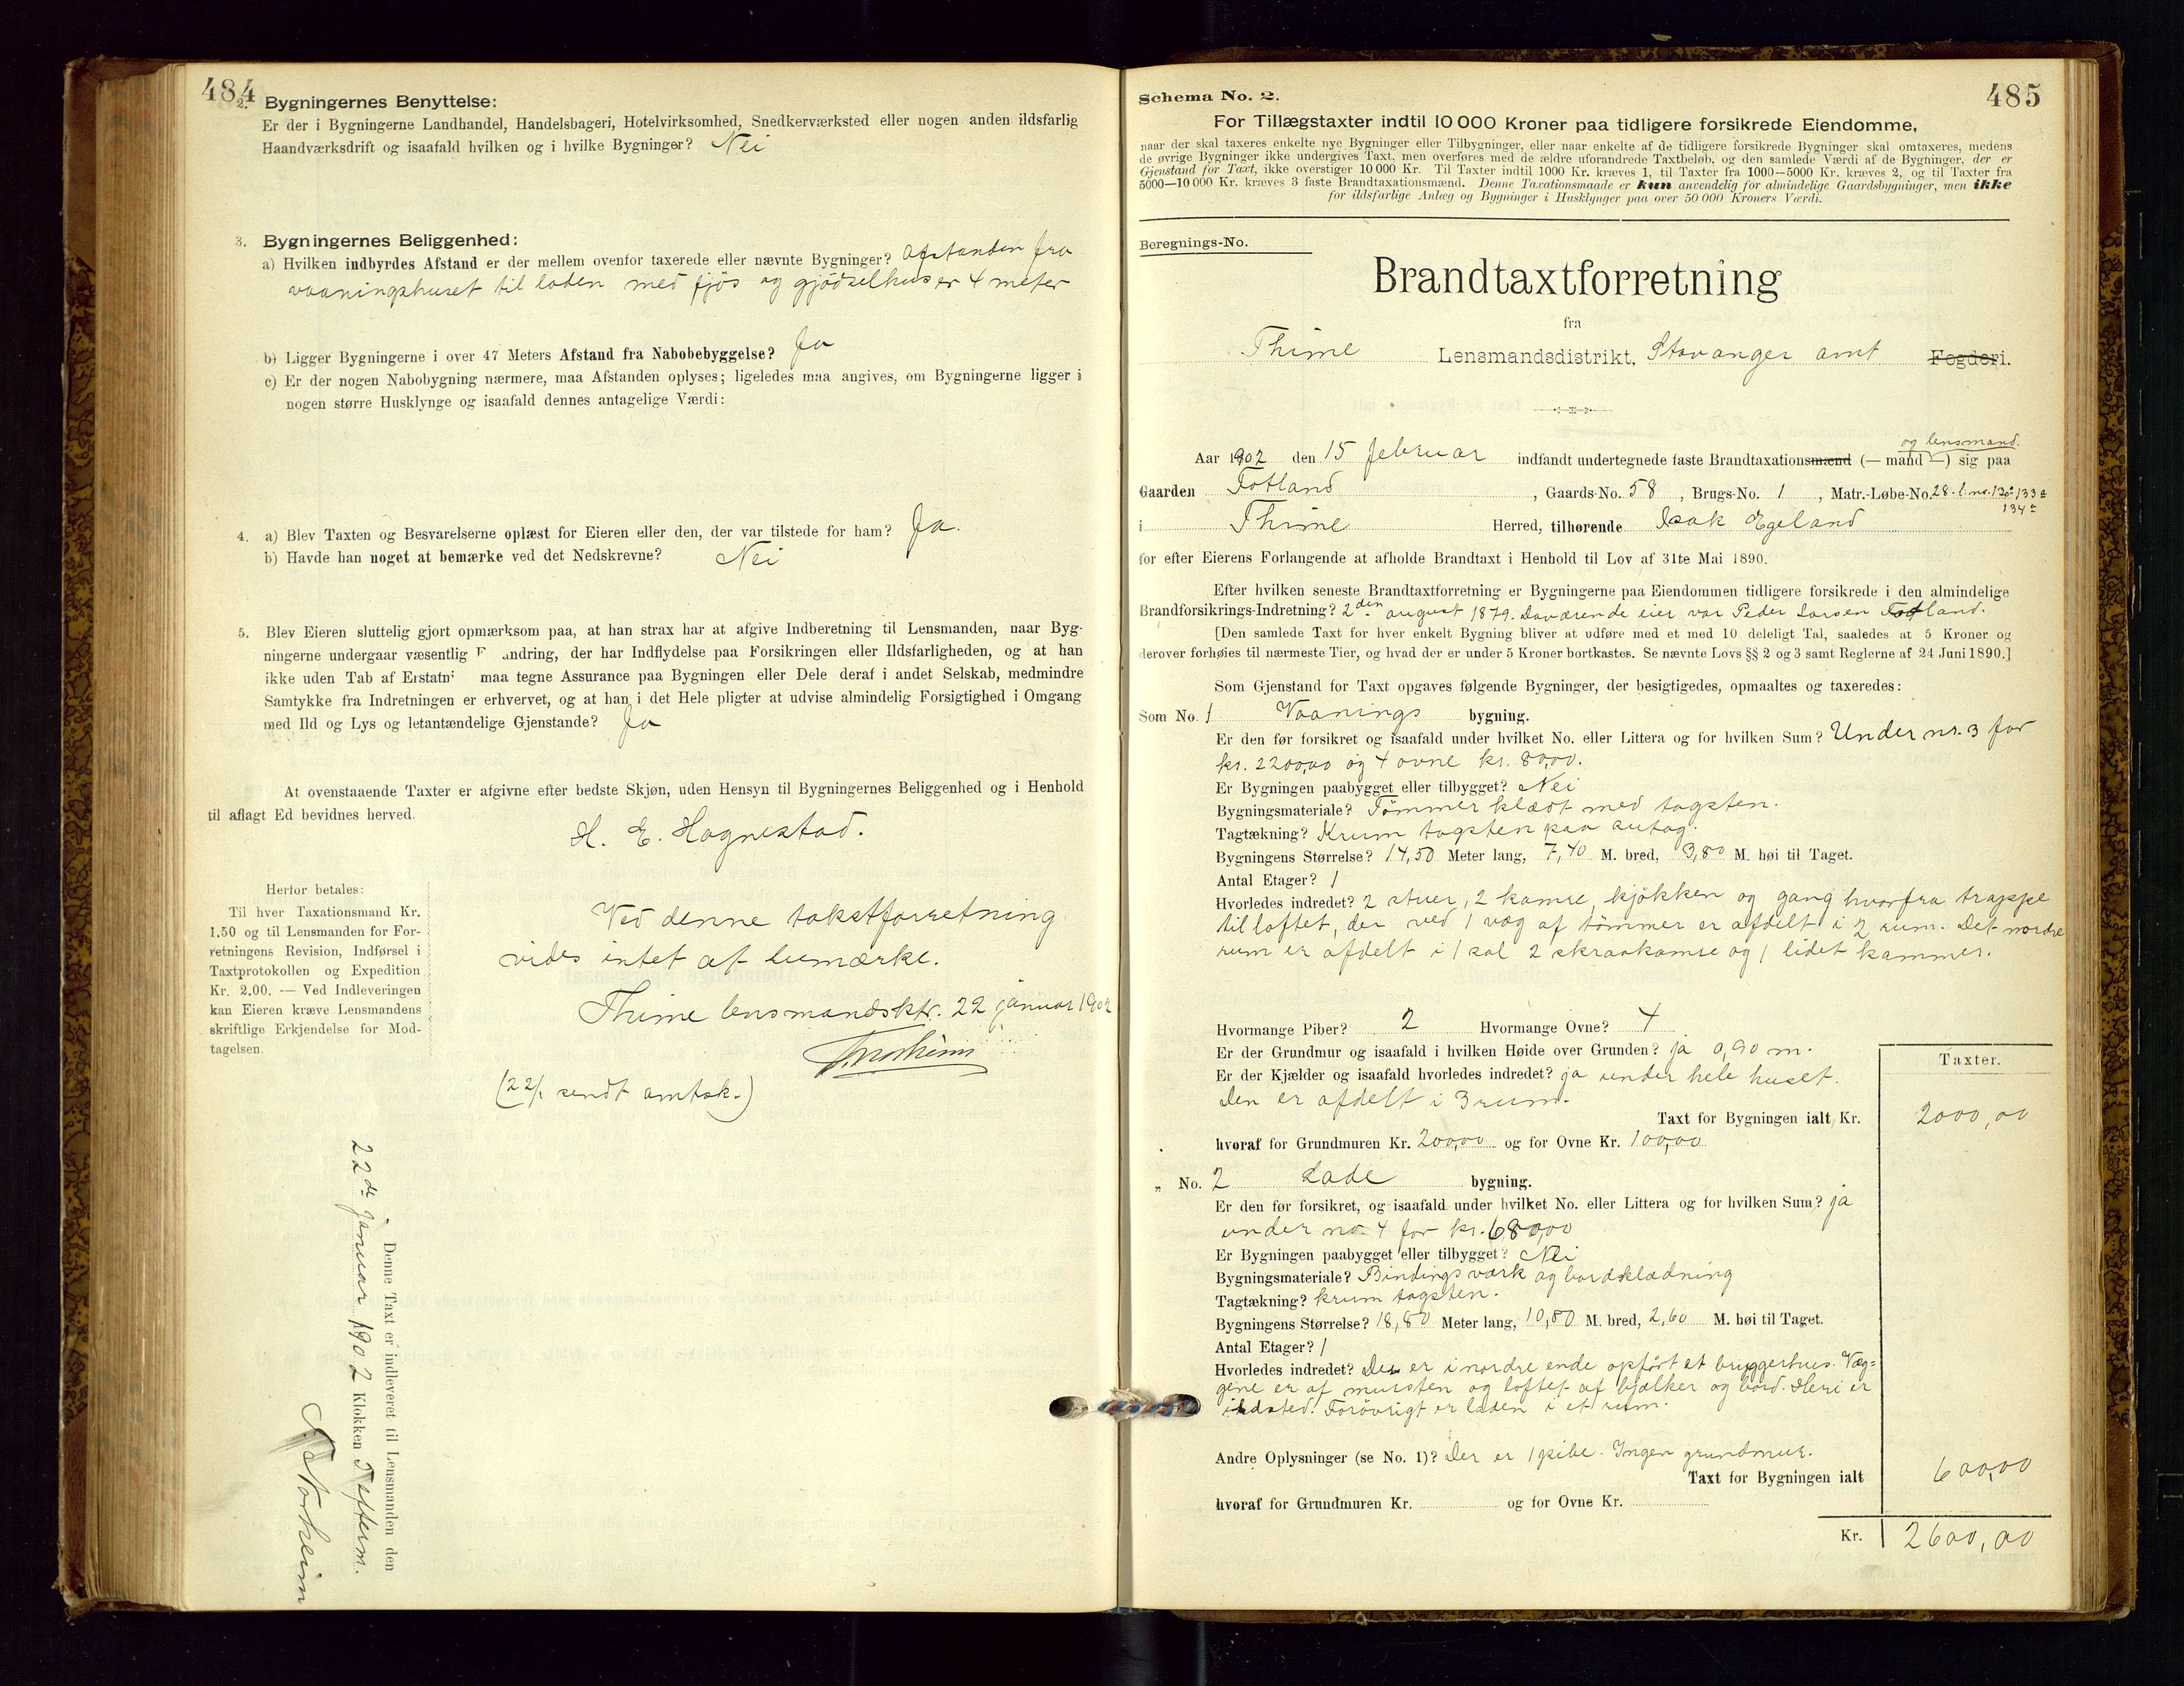 484
2. Bygningernes Benyttelse:
Er der i Bygningerne Landhandel, Handelsbageri, Hotelvirksomhed, Snedkerværksted eller nogen anden ildsfarlig
Haandværksdrift og isaafald hvilken og i hvilke Bygninger? Nei
3. Bygningernes Beliggenhed:
a) Hvilken indbyrdes Afstand er der mellem ovenfor taxerede eller nævnte Bygninger? Afstanden fra
vaaningshuset til laden med fjös og gjödselhus er 4 meter
b) Ligger Bygningerne i over 47 Meters Afstand fra Nabobebyggelse? Ja
c) Er der nogen Nabobygning nærmere, maa Afstanden oplyses; ligeledes maa angives, om Bygningerne ligger i
nogen større Husklynge og isaafald dennes antagelige Værdi:
4. a) Blev Taxten og Besvarelserne oplæst for Eieren eller den, der var tilstede for ham? Ja.
b) Havde han noget at bemærke ved det Nedskrevne? Nei
5. Blev Eieren sluttelig gjort opmærksom paa, at han strax har at afgive Indberetning til Lensmanden, naar Byg-
ningerne undergaar væsentlig F andring, der har Indflydelse paa Forsikringen eller Ildsfarligheden, og at han
ikke uden Tab af Erstatn maa tegne Assurance paa Bygningen eller Dele deraf i andet Selskab, medmindre
Samtykke fra Indretningen er erhvervet, og at han i det Hele pligter at udvise almindelig Forsigtighed i Omgang
med Ild og Lys og letantændelige Gjenstande? Ja
At ovenstaaende Taxter er afgivne efter bedste Skjøn, uden Hensyn til Bygningernes Beliggenhed og i Henhold
til aflagt Ed bevidnes herved.
H. E. Hognestad.
Herfor betales:
Til hver Taxationsmand Kr.
1.50 og til Lensmanden for For-
retningens Revision, Indførsel i
Taxtprotokollen og Expedition
Kr. 2.00. — Ved Indleveringen
kan Eieren kræve Lensmandens
skriftlige Erkjendelse for Mod-
tagelsen.
Ved denne takstforretning
vides intet at bemærke.
Thime lensmandsktr. 22 januar 1902
Storheim
(22/1 sendt amtsk.)
Denne Taxt er indleveret til Lensmanden den
22de januar 1902 Klokken 7 eftem.
Storheim
485
Schema No. 2.
For Tillægstaxter indtil 10 000 Kroner paa tidligere forsikrede Eiendomme,
naar der skal taxeres enkelte nye Bygninger eller Tilbygninger, eller naar enkelte af de tidligere forsikrede Bygninger skal omtaxeres, medens
de øvrige Bygninger ikke undergives Taxt, men overføres med de ældre uforandrede Taxtbeløb, og den samlede Værdi af de Bygninger, der er
Gjenstand for Taxt, ikke overstiger 10 000 Kr. Til Taxter indtil 1000 Kr. kræves 1, til Taxter fra 1000—5000 Kr. kræves 2, og til Taxter fra
5000—10 000 Kr. kræves 3 faste Brandtaxationsmænd. Denne Taxationsmaade er kun anvendelig for almindelige Gaardsbygninger, men ikke
for ildsfarlige Anlæg og Bygninger i Husklynger paa over 50 000 Kroners Værdi.
Beregnings-No.
Brandtaxtforretning
fra
Thime Lensmandsdistrikt, Stavanger amt Fogderi.
og lensmand.
Aar 1902 den 15 februar indfandt undertegnede faste Brandtaxationsmænd (— mand —) sig paa
Gaarden Fotland, Gaards-No. 58, Brugs-No. 1, Matr.-Løbe-No. 28. l.no. 130a 133a
134a
i Thime Herred, tilhørende Isak Egeland
for efter Eierens Forlangende at afholde Brandtaxt i Henhold til Lov af 31te Mai 1890.
Efter hvilken seneste Brandtaxtforretning er Bygningerne paa Eiendommen tidligere forsikrede i den almindelige
Brandforsikrings-Indretning? 2den august 1879. Daværende eier var Peder Larsen Fotland.
[Den samlede Taxt for hver enkelt Bygning bliver at udføre med et med 10 deleligt Tal, saaledes at 5 Kroner og
derover forhøies til nærmeste Tier, og hvad der er under 5 Kroner bortkastes. Se nævnte Lovs §§ 2 og 3 samt Reglerne af 24 Juni 1890.]
Som Gjenstand for Taxt opgaves følgende Bygninger, der besigtigedes, opmaaltes og taxeredes:
Som No. 1 Vaanings bygning.
Er den før forsikret og isaafald under hvilket No. eller Littera og for hvilken Sum? Under nr. 3 for
kr. 2200,00 og 4 ovne kr. 80,00.
Er Bygningen paabygget eller tilbygget? Nei
Bygningsmateriale? Tömmer klædt med tagsten.
Tagtækning? Krum tagsten paa sutag.
Bygningens Størrelse? 14,50 Meter lang, 7,40 M. bred, 3,80 M. høi til Taget.
Antal Etager? 1
Hvorledes indredet? 2 stuer, 2 kamre, kjökken og gang hvorfra trappe
til loftet, der ved 1 væg af tömmer er afdelt i 2 rum. Det nordre
rum er afdelt i 1 sal 2 skraakamre og 1 lidet kammer.
Hvormange Piber? 2 Hvormange Ovne? 4
Er der Grundmur og isaafald i hvilken Høide over Grunden? ja 0,90 m.
Er der Kjælder og isaafald hvorledes indredet? ja under hele huset.
Den er afdelt i 3 rum.
Taxter.
Taxt for Bygningen ialt Kr. 2000,00
hvoraf for Grundmuren Kr. 200,00 og for Ovne Kr. 100,00
„ No. 2 Lade bygning.
Er den før forsikret, og isaafald under hvilket No. eller Littera og for hvilken Sum? ja
under no. 4 for kr. 680,00
Er Bygningen paabygget eller tilbygget? Nei
Bygningsmateriale? Bindingsværk og bordklædning
Tagtækning? krum tagsten.
Bygningens Størrelse? 18,80 Meter lang, 10,80 M. bred, 2,60 M. høi til Taget.
Antal Etager? 1
Hvorledes indredet? Der er i nordre ende opfört et bryggerhus. Væg=
gene er af mursten og loftet af bjælker og bord. Heri er
ildsted. Forövrigt er laden i et rum.
Andre Oplysninger (se No. 1)? Der er 1 pibe. Ingen grundmur.
Taxt for Bygningen ialt 600,00
hvoraf for Grundmuren Kr. og for Ovne Kr.
Kr. 2600,00